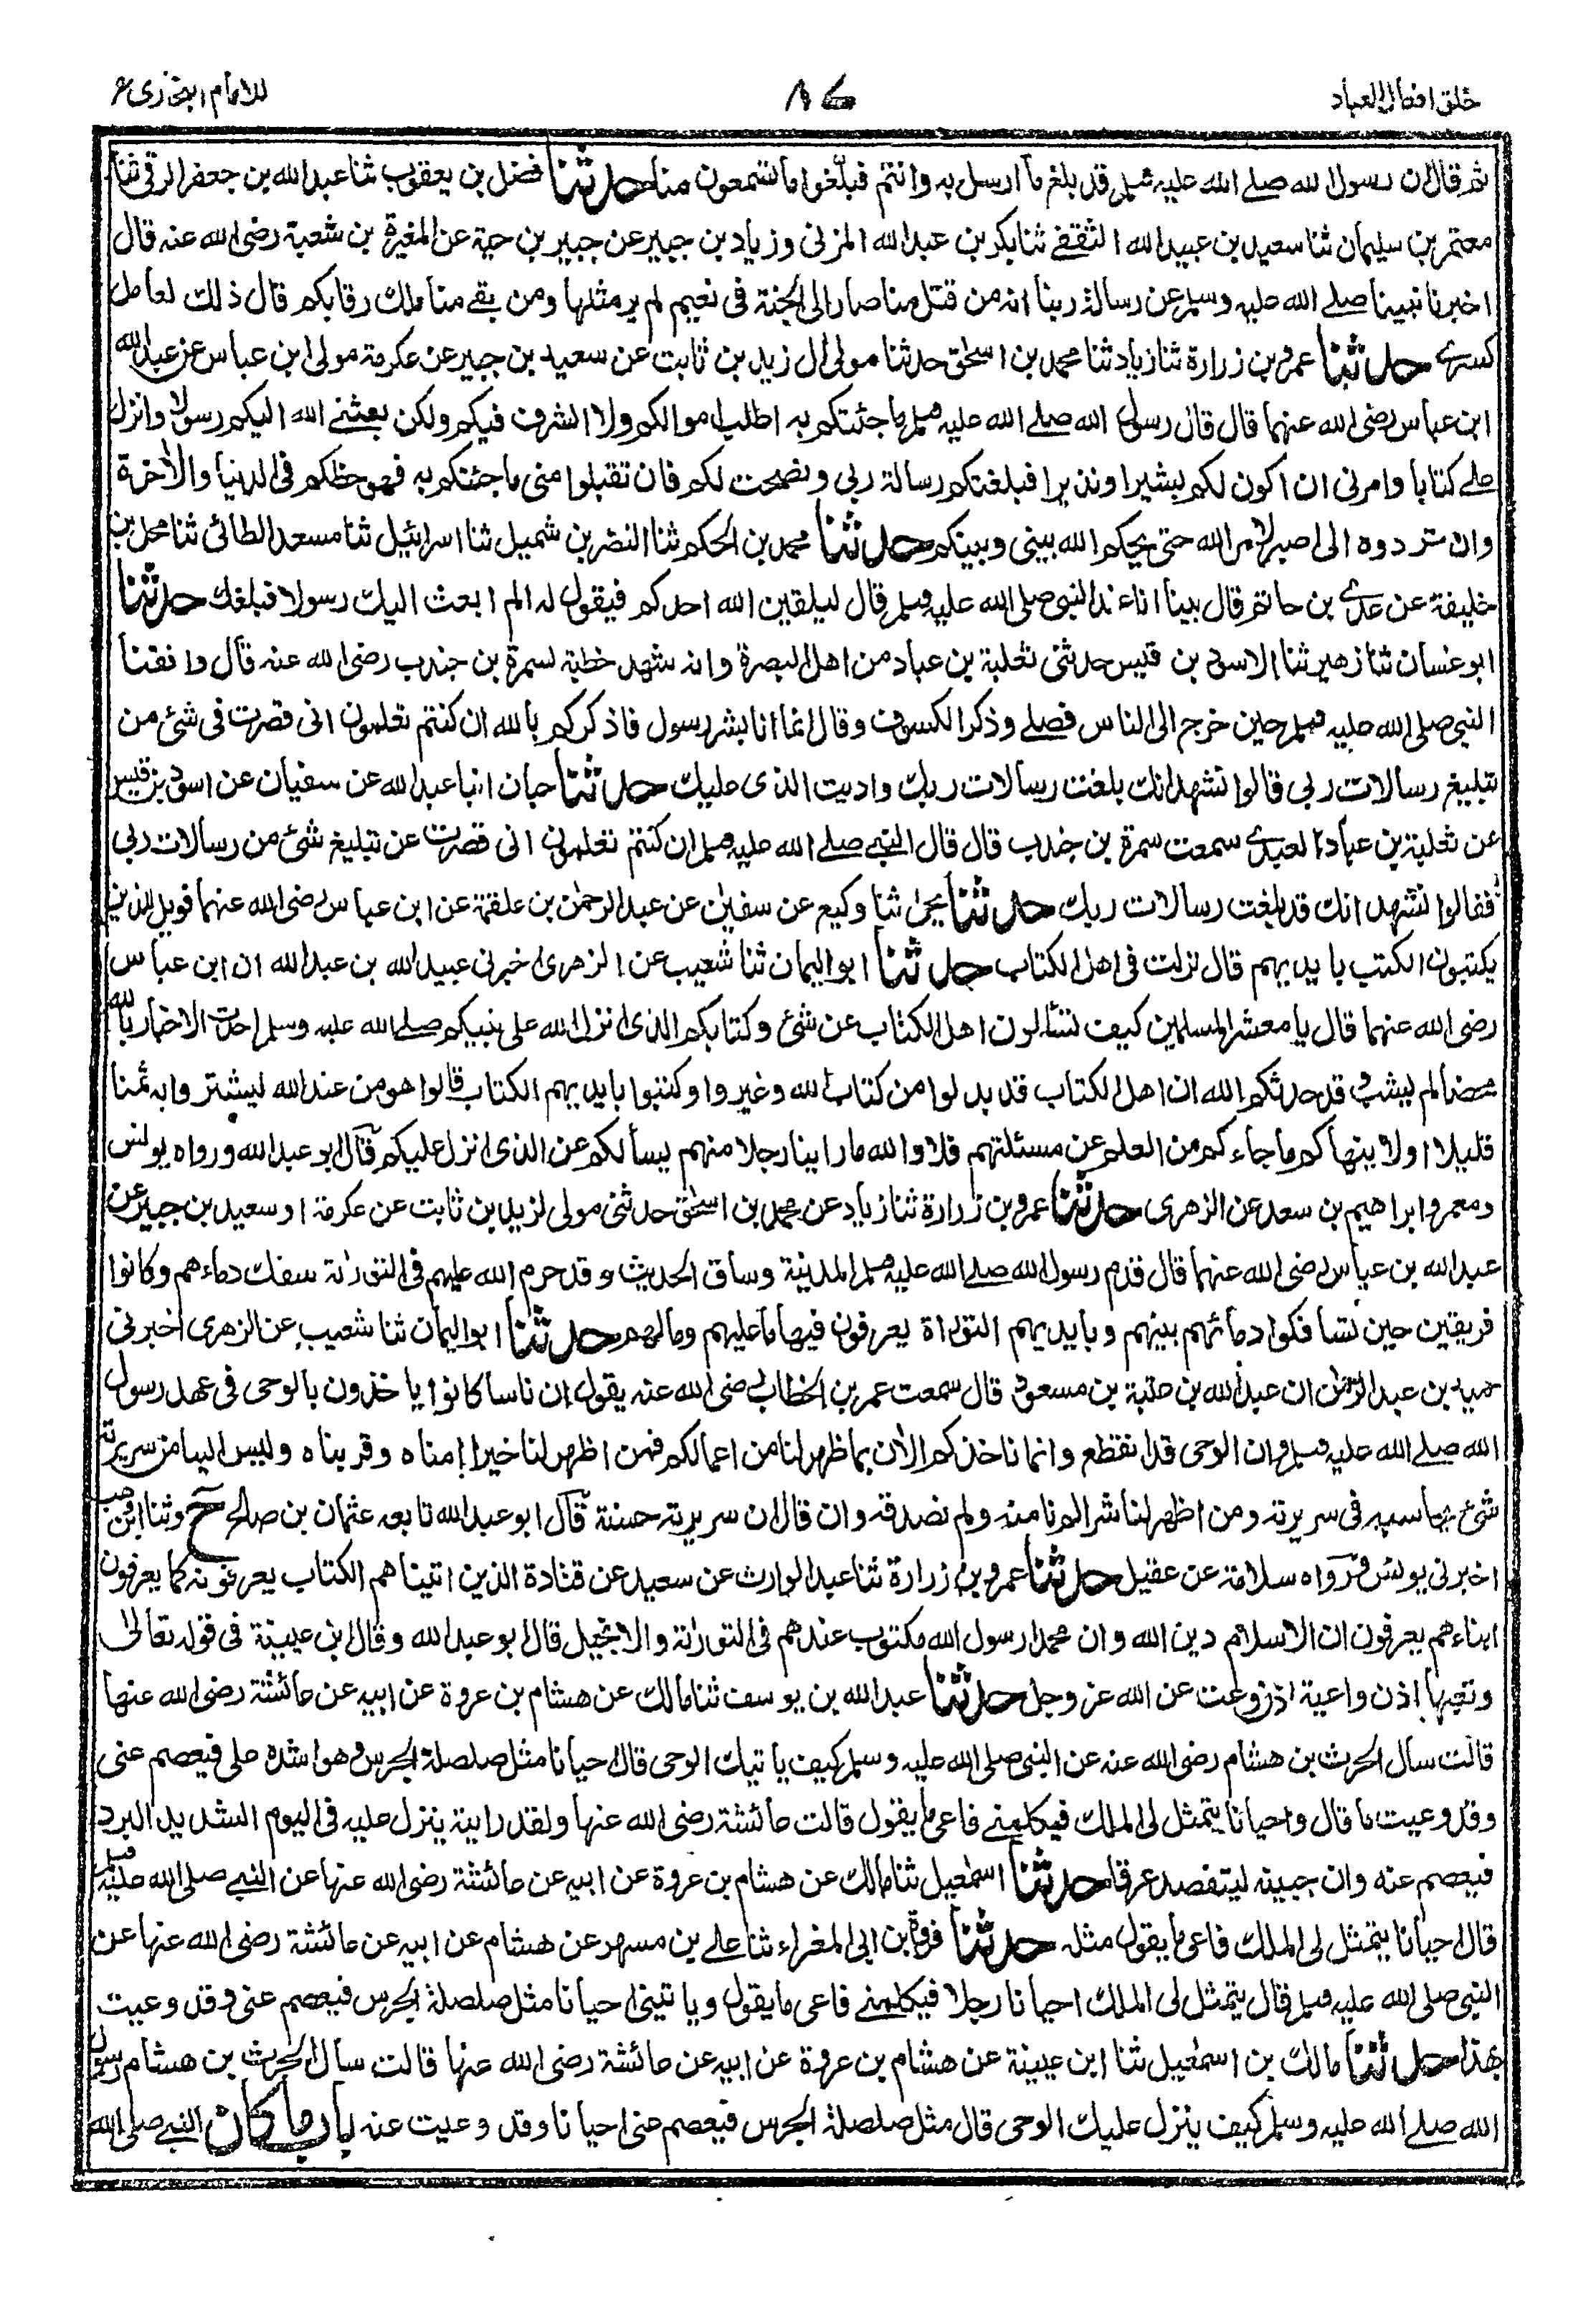 خلق افعال العباد
٨٤
للامام البخاری
ثم قال ان رسول الله صلے الله علیه وسلم قد بلغ ما ارسل به وانتم فبلغوا ما تسمعون منا حدثنا فضل بن یعقوب ثنا عبد الله بن جعفر الرقی ثنا
معتمر بن سلیمان ثنا سعید بن عبید الله الثقفے ثنا بکر بن عبد الله المزنی وزیاد بن جبیر عن جبیر بن حیة عن المغیرة بن شعبة رضی الله عنه قال
اخبرنا نبینا صلے الله علیه وسلم عن رسالة ربنا انه من قتل منا صار الی الجنة فی نعیم لم یر مثلها ومن بقے منا ملك رقابکم قال ذلك لعامل
کسرے حدثنا عمرو بن زرارة ثنا زیاد ثنا محمد بن اسحٰق حدثنا مولی ال زید بن ثابت عن سعید بن جبیر عن عکرمة مولی ابن عباس عن عبد الله
ابن عباس رضی الله عنهما قال قال رسول الله صلے الله علیه وسلم ما جئتکم به اطلب اموالکم ولا الشرف فیکم ولکن بعثنے الله الیکم رسولا وانزل
علے کتابا وامرنی ان اکون لکم بشیرا ونذیرا فبلغتکم رسالة ربی ونصحت لکم فان تقبلوا منی ما جئتکم به فهو حظکم فی الدنیا والاٰخرة
وان تردوه الی اصبر لامر الله حتی یحکم الله بینی وبینکم حدثنا محمد بن الحکم ثنا النضر بن شمیل ثنا اسرائیل ثنا مسعد الطائی ثنا محل بن
خلیفة عن عدے بن حاتم قال بینا انا عند النبی صلی الله علیه وسلم قال لیلقین الله احدکم فیقول له الم ابعث الیك رسولا فبلغك حدثنا
ابو غسان ثنا زهیر ثنا الاسود بن قیس حدثنی ثعلبة بن عباد من اهل البصرة وانه شهد خطبة لسمرة بن جندب رضی الله عنه قال وافقنا
النبی صلی الله علیه وسلم حین خرج الی الناس فصلے وذکر الکسوف وقال انما انا بشر رسول فاذکرکم بالله ان کنتم تعلمون انی قصرت فی شئ من
تبلیغ رسالات ربی قالوا نشهد انك بلغت رسالات ربك وادیت الذی علیك حدثنا حبان انبا عبد الله عن سفیان عن اسود بن قیس
عن ثعلبة بن عباد العبدے سمعت سمرة بن جندب قال قال النبے صلے الله علیه وسلم ان کنتم تعلمون انی قصرت عن تبلیغ شئ من رسالات ربی
فقالوا نشهد انك قد بلغت رسالات ربك حدثنا یحیٰ ثنا وکیع عن سفیٰن عن عبد الرحمٰن بن علقمة عن ابن عباس رضی الله عنهما فویل للذین
یکتبون الکتب بایدیهم قال نزلت فی اهل الکتاب حدثنا ابو الیمان ثنا شعیب عن الزهری اخبرنی عبید الله بن عبد الله ان ابن عباس
رضی الله عنهما قال یا معشر المسلمین کیف تسألون اهل الکتاب عن شئ وکتابکم الذی انزل الله علی نبیکم صلے الله علیه وسلم احدث الاخبار بالله
محضا لم یشب وقد حدثکم الله ان اهل الکتاب قد بدلوا من کتاب الله وغیروا وکتبوا بایدیهم الکتاب قالوا هو من عند الله لیشتروا به ثمنا
قلیلا اولا ینهاکم ما جاءکم من العلم عن مسئلتهم فلا والله ما راینا رجلا منهم یسألکم عن الذی انزل علیکم قال ابو عبد الله ورواه یونس
ومعمر وابراهیم بن سعد عن الزهری حدثنا عمرو بن زرارة ثنا زیاد عن محمد بن اسحٰق حدثنی مولی لزید بن ثابت عن عکرمة او سعید بن جبیر عن
عبد الله بن عباس رضی الله عنهما قال قدم رسول الله صلے الله علیه وسلم المدینة وساق الحدیث وقد حرم الله علیهم فی التورٰىة سفك دماءهم وکانوا
فریقین حین تسافکوا دمائهم بینهم وبایدیهم التوراة یعرفون فیها ما علیهم وما لهم حدثنا ابو الیمان ثنا شعیب عن الزهری اخبرنی
حمید بن عبد الرحمٰن ان عبد الله بن عتبة بن مسعود قال سمعت عمر بن الخطاب رضی الله عنه یقول ان ناسا کانوا یاخذون بالوحی فی عهد رسول
الله صلے الله علیه وسلم وان الوحی قد انقطع وانما ناخذکم الاٰن بما ظهر لنا من اعمالکم فمن اظهر لنا خیرا امناه وقربناه ولیس الینا من سریرته
شئ یحاسبه فی سریرته ومن اظهر لنا شرا لم نامنه ولم نصدقه وان قال ان سریرته حسنة قال ابو عبد الله تابعه عثمان بن صالح ح وثنا ابن وهب
اخبرنی یونس ورواه سلامة عن عقیل حدثنا عمرو بن زرارة ثنا عبد الوارث عن سعید عن قتادة الذین اتیناهم الکتاب یعرفونه کما یعرفون
ابناءهم یعرفون ان الاسلام دین الله وان محمدا رسول الله مکتوب عندهم فی التورٰىة والانجیل قال ابو عبد الله وقال ابن عیینة فی قوله تعالیٰ
وتعیها اذن واعیة اذ وعت عن الله عز وجل حدثنا عبد الله بن یوسف ثنا مالك عن هشام بن عروة عن ابیه عن عائشة رضی الله عنها
قالت سأل الحرث بن هشام رضی الله عنه عن النبی صلی الله علیه وسلم کیف یاتیك الوحی قال احیانا مثل صلصلة الجرس وهو اشده علی فیفصم عنی
وقد وعیت ما قال واحیانا یتمثل لی الملك فیکلمنے فاعی ما یقول قالت عائشة رضی الله عنها ولقد رایته ینزل علیه فی الیوم الشدید البرد
فیفصم عنه وان جبینه لیتفصد عرقا حدثنا اسمٰعیل ثنا مالك عن هشام بن عروة عن ابیه عن عائشة رضی الله عنها عن النبے صلی الله علیه وسلم
قال احیانا یتمثل لی الملك فاعی ما یقول مثله حدثنا فروة بن ابی المغراء ثنا علے بن مسهر عن هشام عن ابیه عن عائشة رضی الله عنها عن
النبی صلی الله علیه وسلم قال یتمثل لی الملك احیانا رجلا فیکلمنے فاعی ما یقول ویاتینی احیانا مثل صلصلة الجرس فیفصم عنی وقد وعیت
بهذا حدثنا مالك بن اسمٰعیل ثنا ابن عیینة عن هشام بن عروة عن ابیه عن عائشة رضی الله عنها قالت سأل الحرث بن هشام رسول
الله صلے الله علیه وسلم کیف ینزل علیك الوحی قال مثل صلصلة الجرس فیفصم عنی احیانا وقد وعیت عنه باب ما کان النبے صلی الله